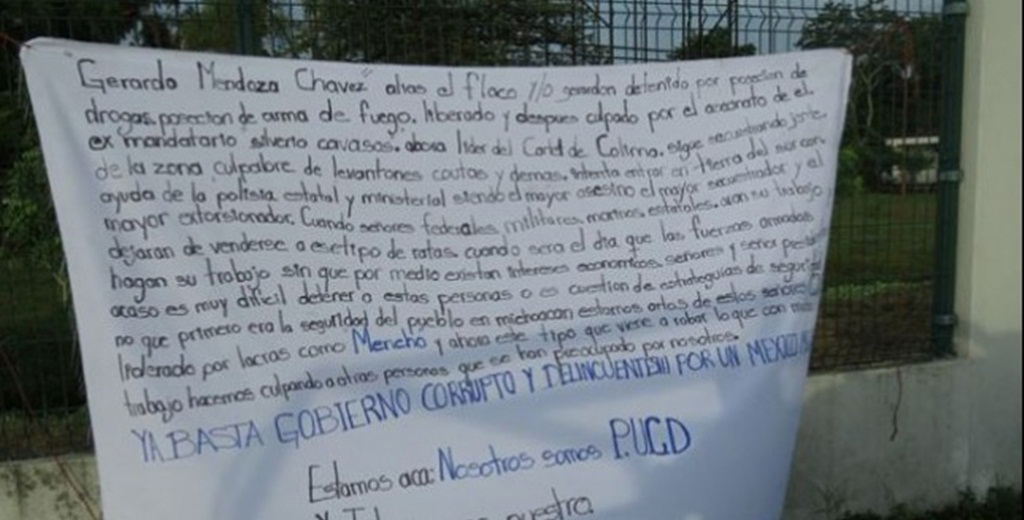 "Gerardo Mendoza Chavez" alias el flaco y/o detenido por posecion de
drogas, posecion de arma de fuego. liberado y despues culpado por el asesinato de el
ex mandatario silverio cavasos. ahora lider del Cartel de Colima. sigue secuestrando jente
de la zona culpabre de levantones cuotas y demas. intenta entrar en tierra del sur con
ayuda de la polisia estatal y ministerial siendo el mayor asesino el mayor secuestrador y el
mayor extorsionador. Cuando señores federales, militares, marinos, estatales, aran su trabajo
dejaran de venderse a ese tipo de ratas. cuando sera el dia que las fuerzas armadas
hagan su trabajo sin que por medio existan intereses economicos. señores y señor
acaso es muy dificil detener a estas personas o es cuestion de estrateguias de seguridad
no que primero era la seguridad del pueblo en michoacan estamos artos de estos señores
liderado por lacras como Mencho y ahora este tipo que viene a robar lo que con
trabajo hacemos culpando a otras personas que se han preocupado por nosotros.
YA BASTA GOBIERNO CORRUPTO Y DELINCUENTE!!! POR UN MEXICO
Estamos aca: Nosotros somos P.U.G.D
nuestra